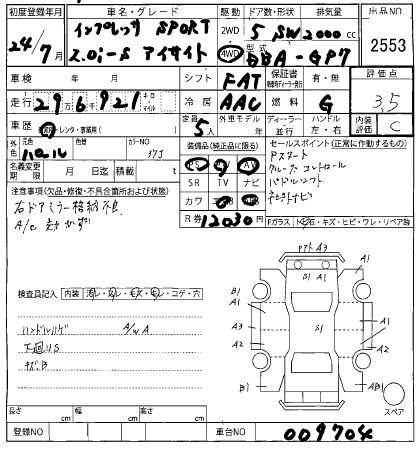 初度登録年月 車名・グレード 駆動 ドア数・形状 排気量 出品NO
24年 7月 インプレッサ SPORT 2WD 4WD 5 SW 2000 cc 2553
2.0i-S アイサイト 型式 DBA-GP7
車検 年 月 シフト FAT 保証書 有・無 評価点
走行 29万6千921 キロ マイル 冷房 AAC 燃料 G 3.5
車歴 レンタ・事業用 定員 5人 外車モデル年 ディーラー 並行 ハンドル 左・右 内装評価 C
外色 元色 色替 カラーNO 37J 装備品(純正品に限る) セールスポイント(正常に作動するもの)
名義変更期限 月 日迄 積載 t PS PW AW
Pスタート
クルーズコントロール
SR TV ナビ パドルシフト
カワ エアB
R券 12030円 Fガラス
キズ・ヒビ・ワレ・リペア跡
注意事項(欠品・修復・不具合箇所および状態)
右ドアミラー格納不良
A/c
検査員記入 内装 コゲ・穴
ハンドルハゲ A/W A
下廻りS
キズB
フロント A3
B1 A1 S1 B1 A1
A1 A1
A3 S1
A2 A2
B1 AB1
スペア
長さ cm 幅 cm 高さ cm
登録NO 車台NO 009704